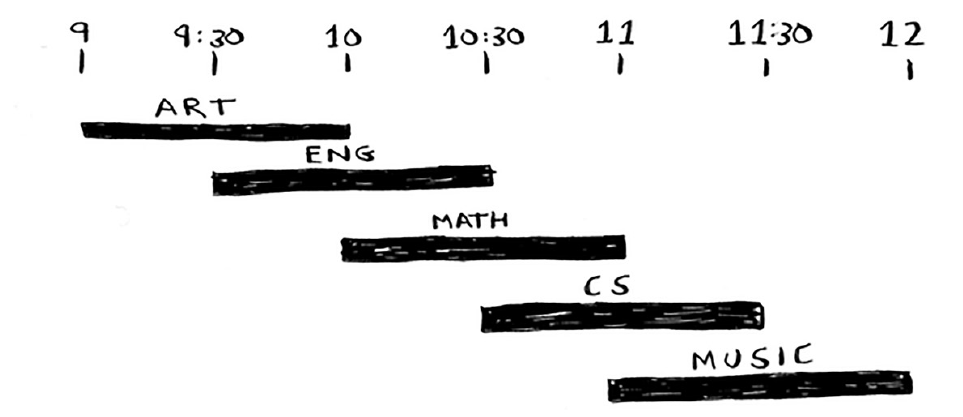 9 9:30 10 10:30 11 11:30 12
ART
ENG
MATH
CS
MUSIC